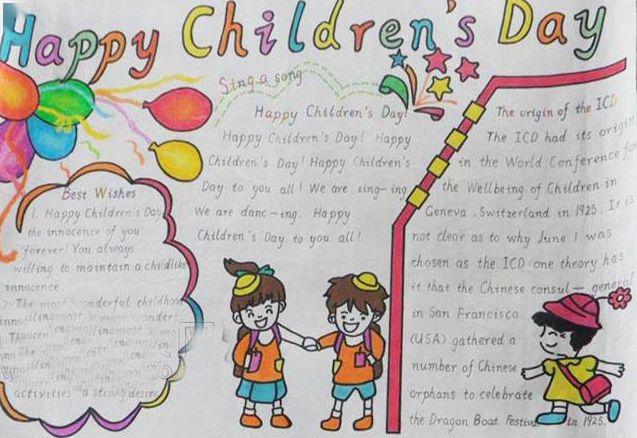 Happy Children's Day
Sing a song
Happy Children's Day!
Happy Children's Day! Happy
Children's Day! Happy Children's
Day to you all! We are sing-ing
We are danc-ing. Happy
Children's Day to you all!
Best Wishes
1. Happy Children's Day
the innocence of you
forever! You always
willing to maintain a childlike
innocence
2. The most wonderful childhood
activities a strong desire
The origin of the ICD
The ICD had its origin
in the World Conference for
the Wellbeing of Children in
Geneva, Switzerland in 1925. It is
not clear as to why June 1 was
chosen as the ICD: one theory has
it that the Chinese consul-general
in San Francisco
(USA) gathered a
number of Chinese
orphans to celebrate
the Dragon Boat Festival in 1925.